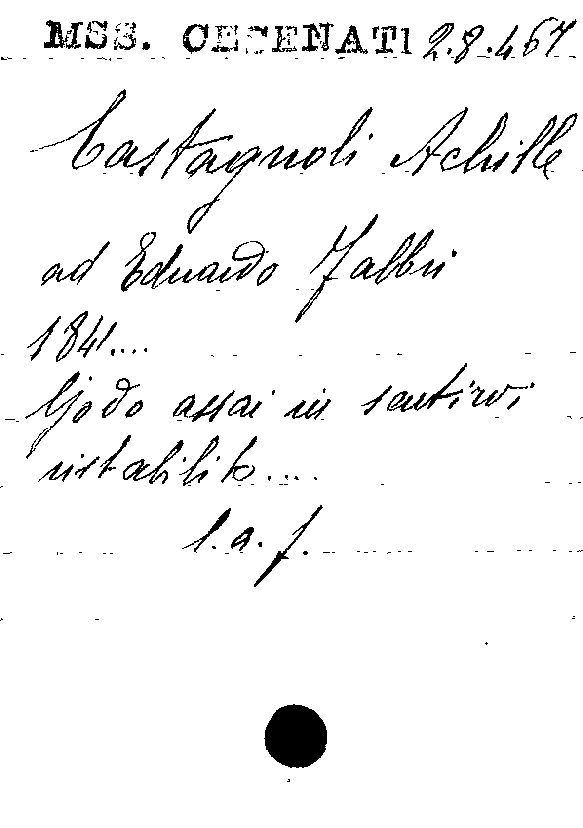 MSS. CESENATI 2.8.467
Castagnoli Achille
ad Eduardo Fabbri
1841....
Godo assai in sentirvi
ristabilito....
l.a.f.